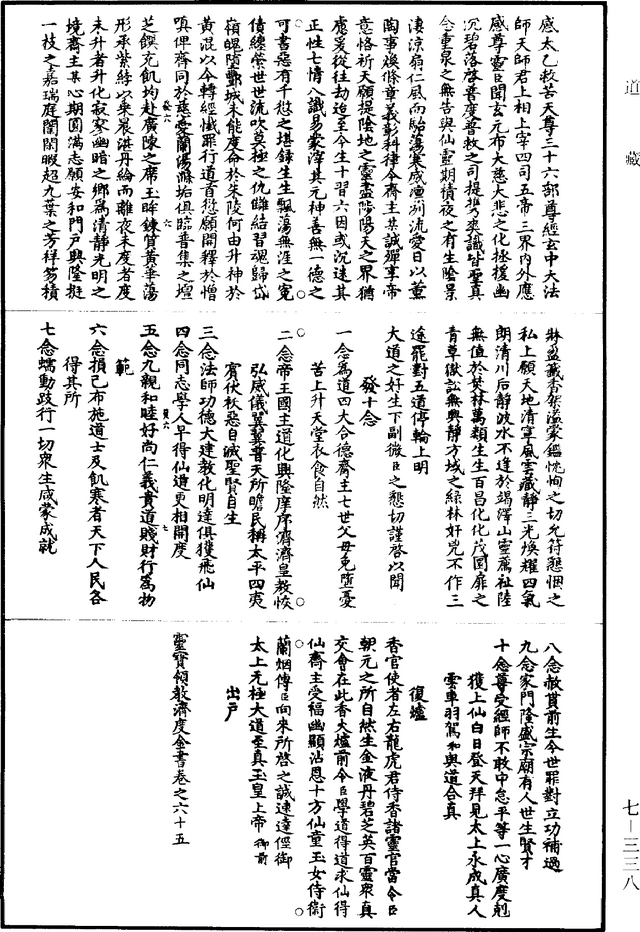 道藏
感太乙救苦天尊三十六部尊經玄中大法
師天師君上相上宰四司五帝三界內外應
感尊靈臣聞玄元布大慈大悲之化拯援幽
沉碧落啓普度普救之司提携爽識皆聖真
念重泉之無告與仙靈期積夜之有生陰景
淒涼扇仁風而駘蕩寒威凛冽流愛日以薰
陶事煥條章義彰科律今齋主某誠殫事帝
意恪祈天願提陰地之靈盡陟陽天之界猶
慮爰從往劫迨至今生十習六因或沉迷其
正性七情八識易蒙滓其元神善無一德之
可書惡有千愆之堪錄生生飄蕩無涯之寃
債纏縈世世流吹莫極之仇讎結習魂歸岱
嶺魄墮酆城未能度命於朱陵何由升神於
黃混以今轉經懺罪行道首愆願開釋於憎
嗔俾齊同於慈愛蘭湯滌垢俱臨普集之壇
芝饌充飢均赴廣陳之席玉眸鍊質黃華蕩
形承紫綍以乘晨湛丹綸而離夜未度者度
未升者升化寂寥幽暗之鄉爲清静光明之
境齋主某心期圓滿志願安和門户興隆挺
一枝之嘉瑞庭闈閑暇超九葉之芳祥芴積
牀盆藏香架溢蒙鑑忱恂之切允符懇悃之
私上願天地清寧風雲藏静三光煥耀四氣
朗清川后静波水不逢於竭澤山靈薦祉陸
無值於焚林萬類生生百昌化化茂圜扉之
青草獄訟無興静方域之綠林奸兇不作三
途罷對五道停輪上明
大道之好生下副微臣之懇切謹啓以聞
發十念
一念爲道四大合德齋主七世父母免墮憂
苦上升天堂衣食自然
二念帝王國主道化興隆庠序濟濟皇教恢
弘威儀翼翼普天所瞻民稱太平四夷
賓伏秡惡自滅聖賢自生
三念法師功德大建教化明達俱獲飛仙
四念同志學人早得仙道更相開度
五念九親和睦好尚仁義貴道賤財行爲物
範
六念損己布施道士及飢寒者天下人民各
得其所
七念蠕動跂行一切衆生咸蒙成就
八念赦貰前生今世罪對立功補過
九念家門隆盛宗廟有人世生賢才
十念尊受經師不敢中怠平等一心廣度剋
獲上仙白日登天拜見太上永成真人
雲車羽駕和與道合真
復爐
香官使者左右龍虎君侍香諸靈官當令臣
朝元之所自然生金液丹碧芝英百靈衆真
交會在此香火爐前令臣學道得道求仙得
仙齋主受福幽顯沾恩十方仙童玉女侍衛
蘭烟傳臣向來所啓之誠速達徑御
太上无極大道至真玉皇上帝 御前
出户
靈寶領教濟度金書卷之六十五
七—三三八